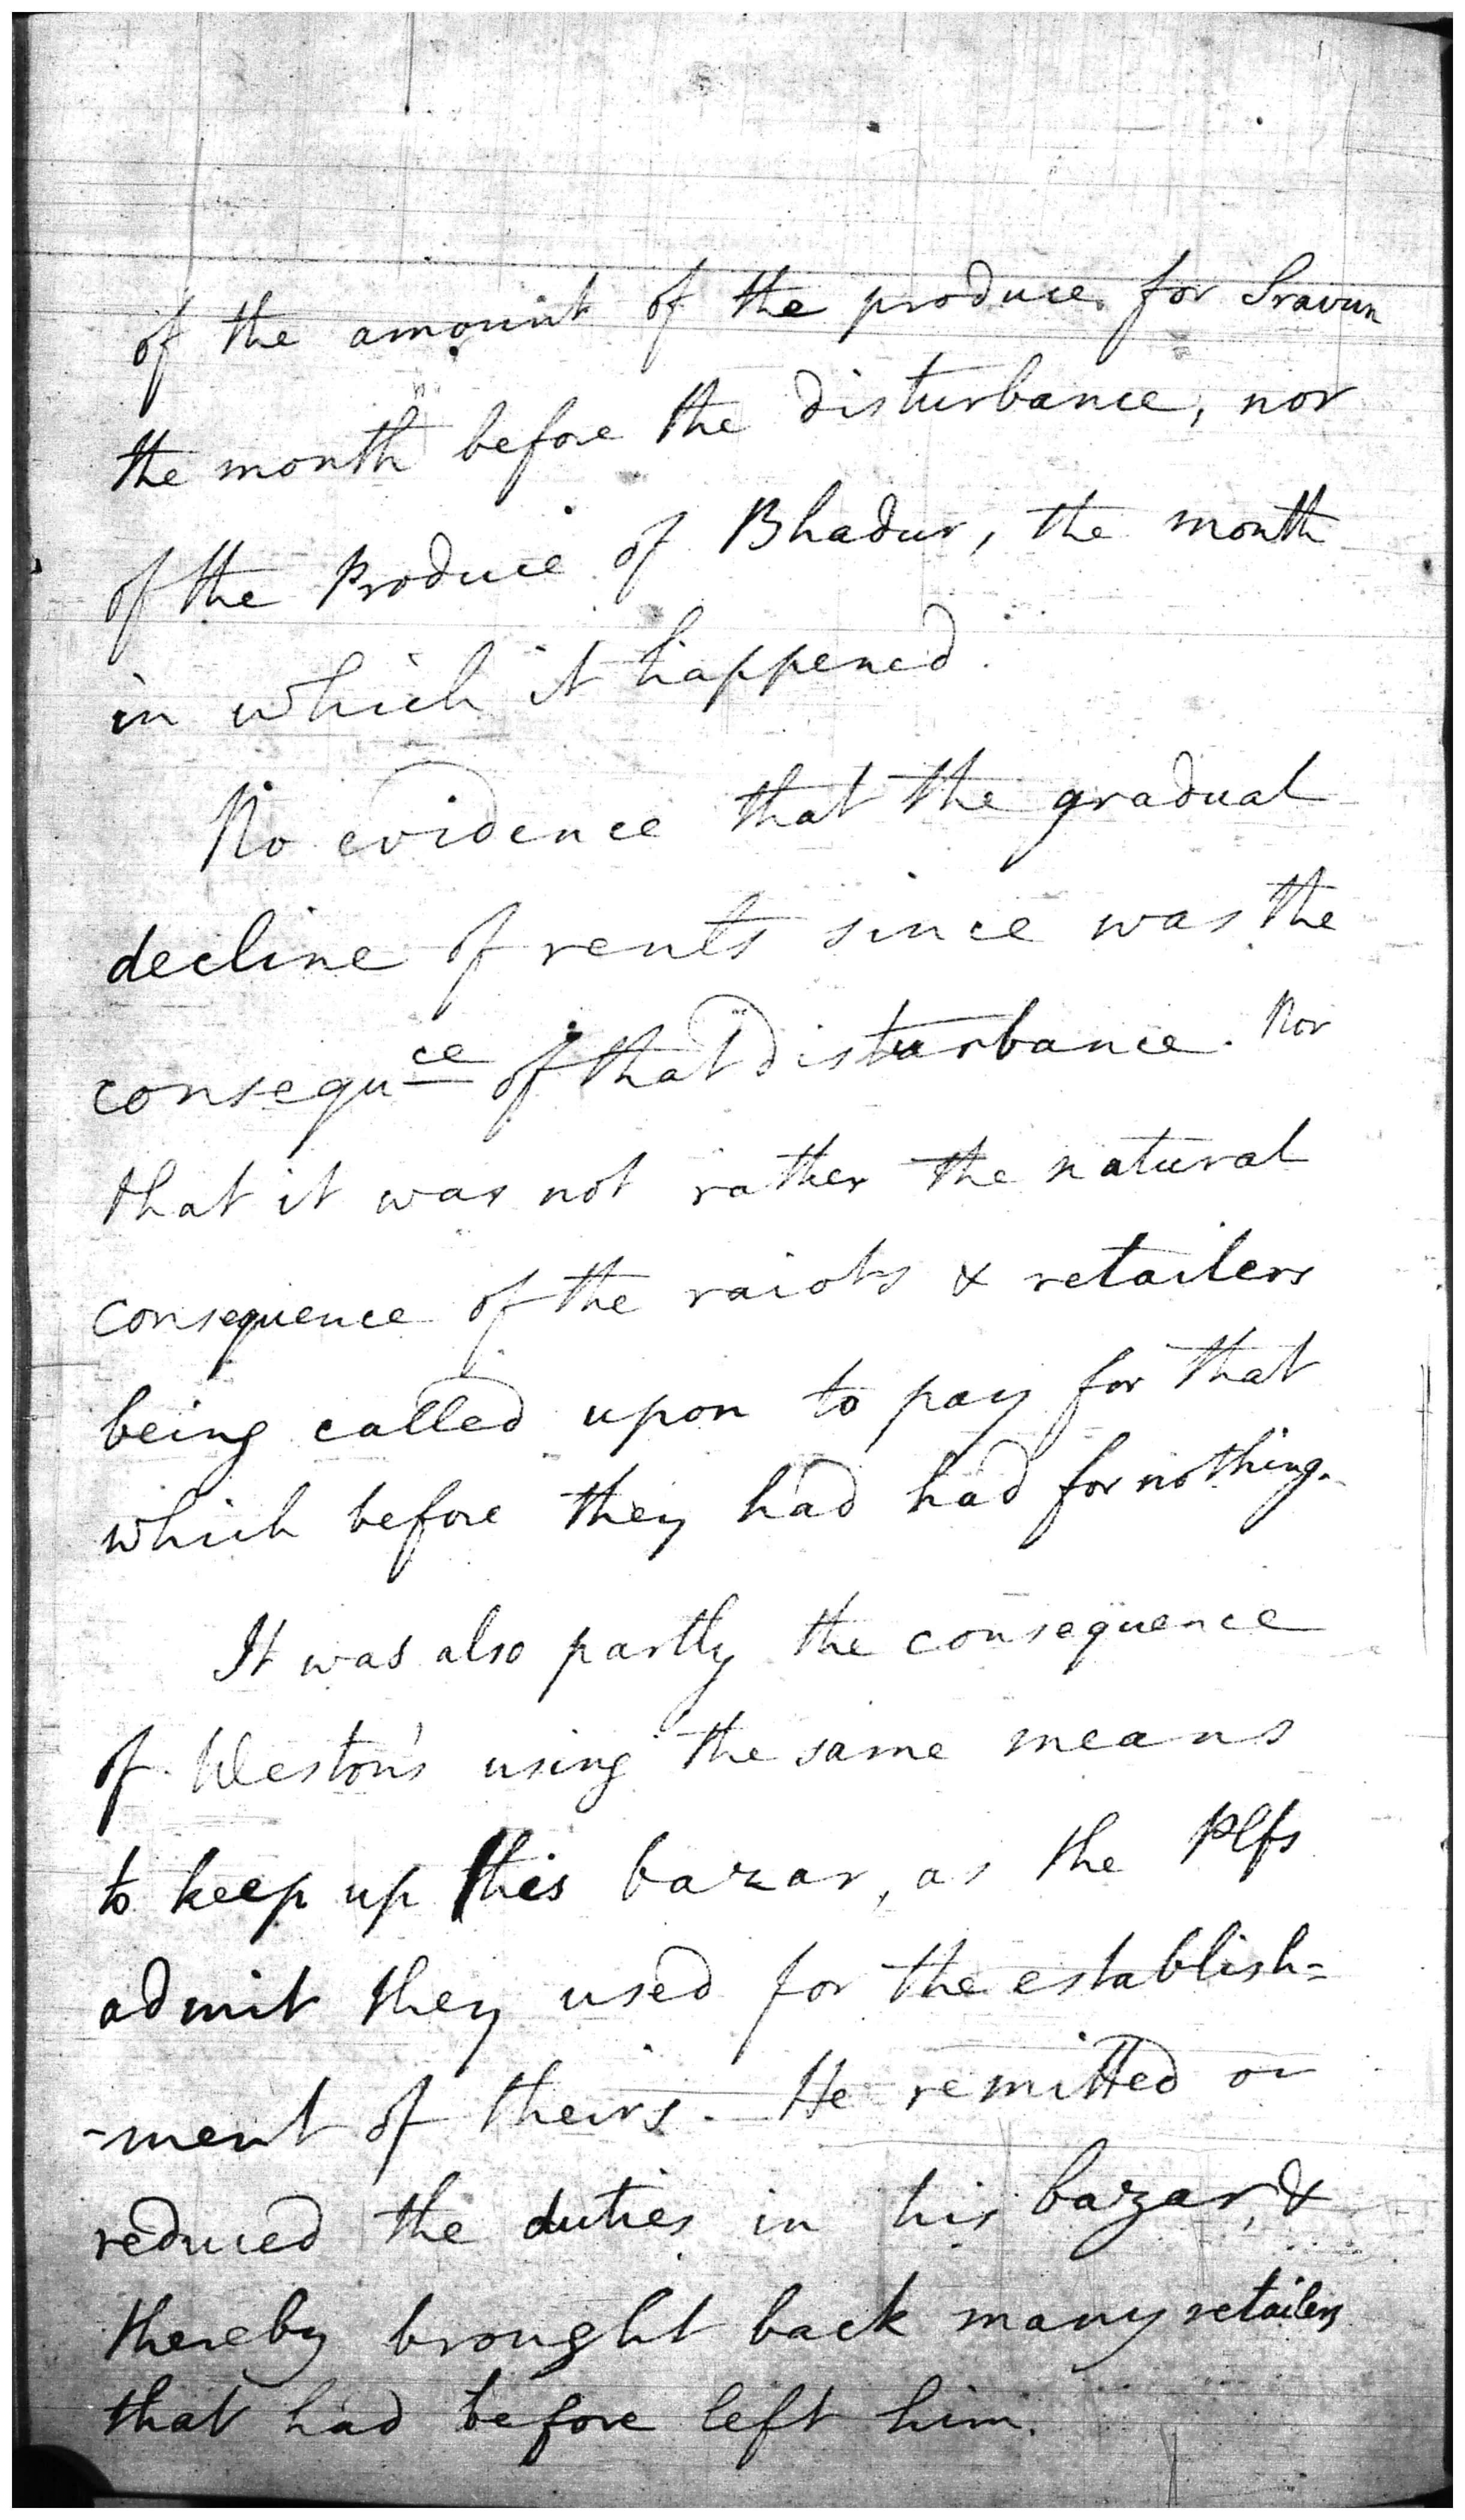 of the amount of the produce for Sravun
the month before the disturbance, nor
of the Produce of Bhadur, the month
in which it happened.
No evidence that the gradual
decline of rents since was the
consequce of that disturbance. Nor
that it was not rather the natural
consequence of the raiots & retailers
being called upon to pay for that
which before they had had for nothing.
It was also partly the consequence
of Weston's using the same means
to keep up this bazar, as the Plfs
admit they used for the establish=
-ment of theirs. He remitted or
reduced the duties in his bazar, &
thereby brought back many retailers
that had before left him.